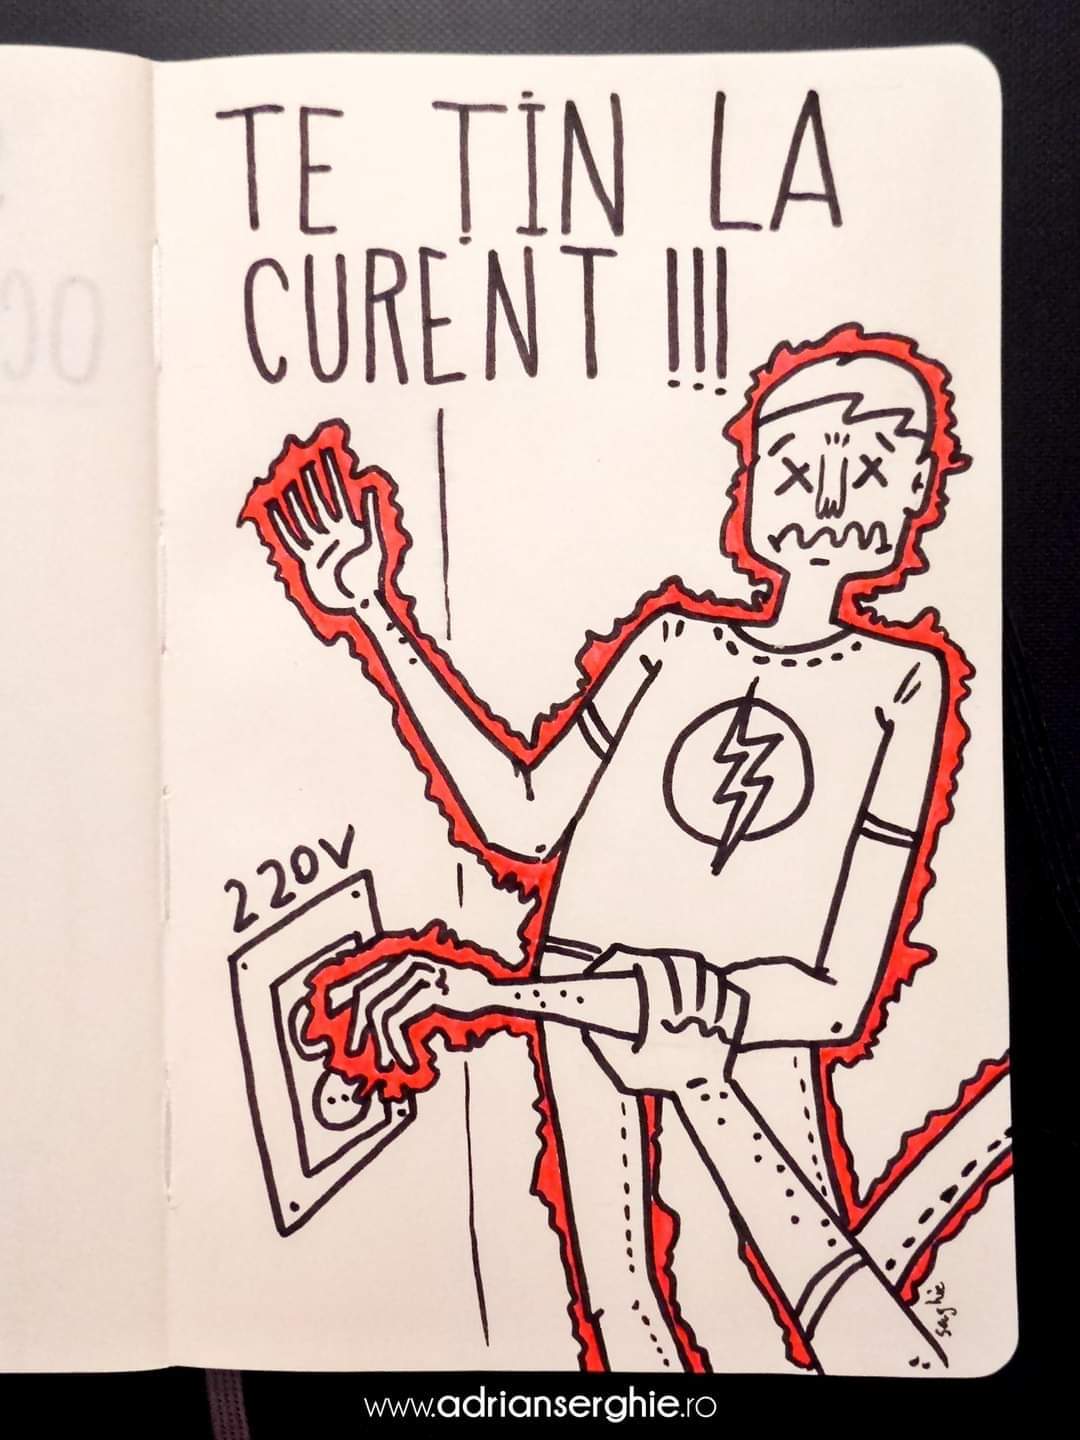 TE ȚİN LA
CURENT !!!
220V
serghie
www.adrianserghie.ro